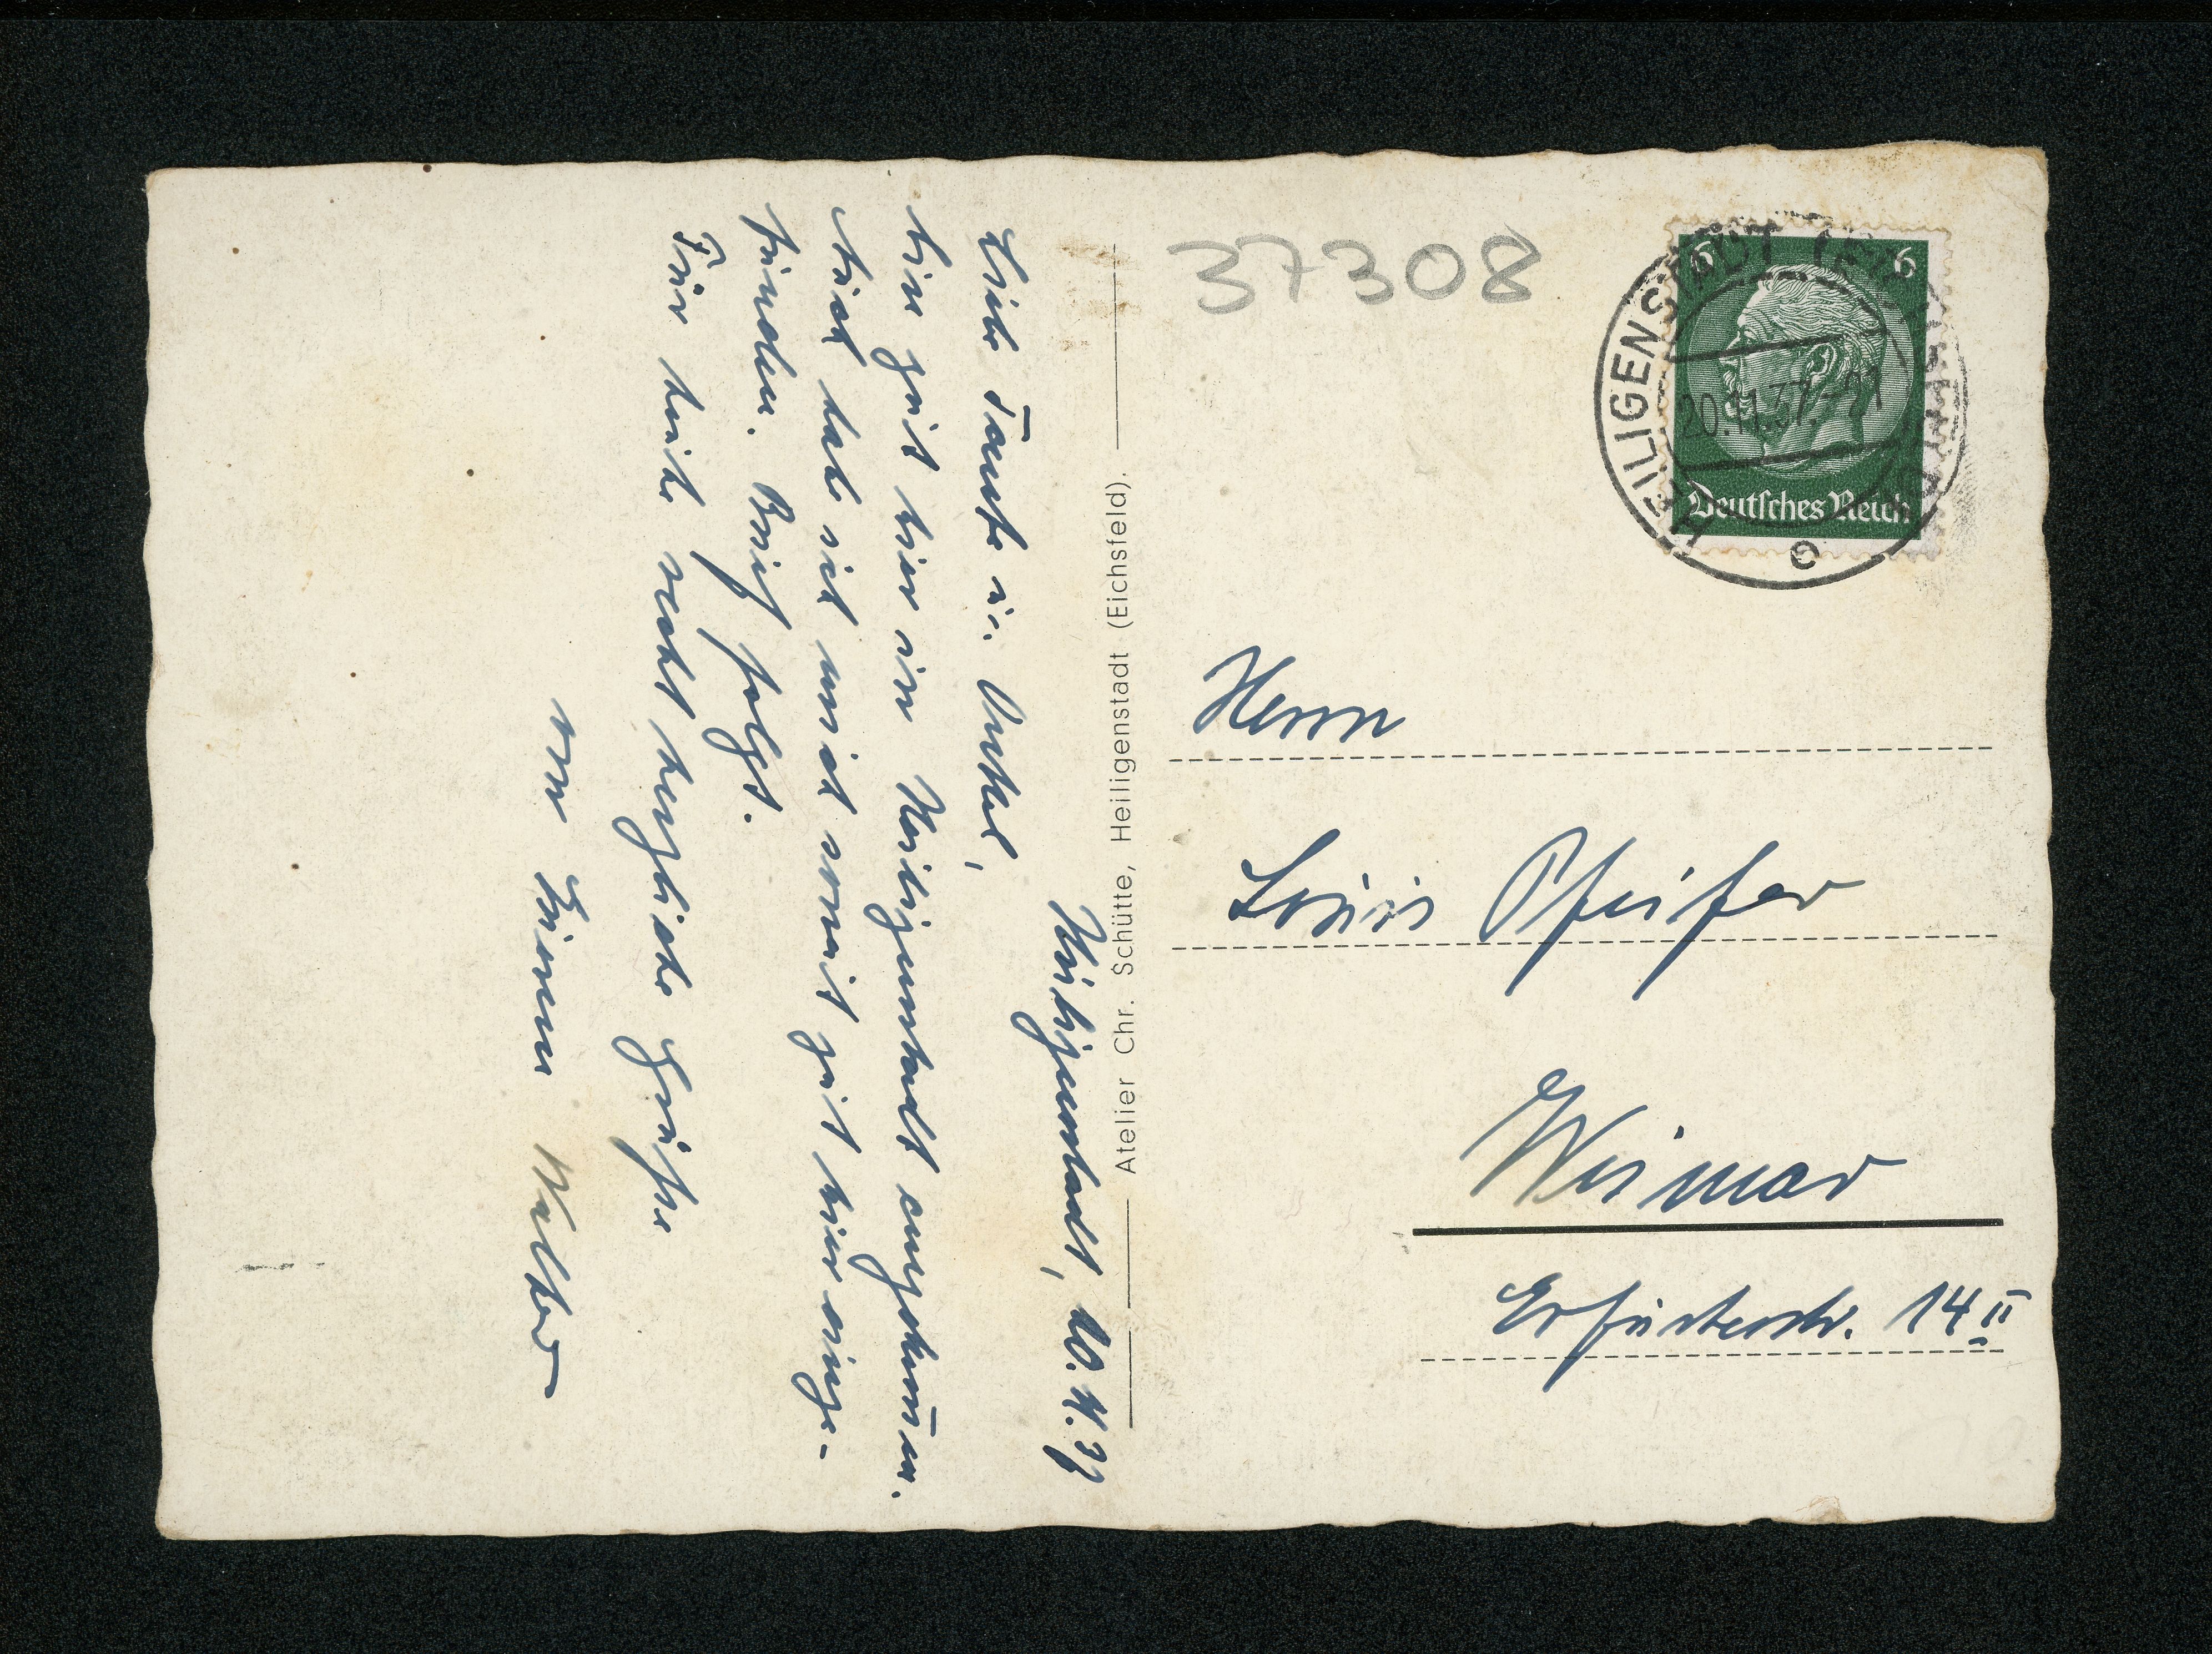 Heiligenstadt, 20.11.37
Liebe Tante u. Onkel,
bin gut hier in Heiligenstadt angekom̄en.
Auch habe ich mich somit gut hier einge-
funden. Brief folgt.
Für heute recht herzliche Grüße
von Eurem Walter
Atelier Chr. Schütte, Heiligenstadt (Eichsfeld).
37308
6 6
Deutsches Reich
HEILIGENSTADT (EICHSFELD)
20.11.37
c
Herrn
Louis Pfeifer
Weimar
Erfurterstr. 14 II